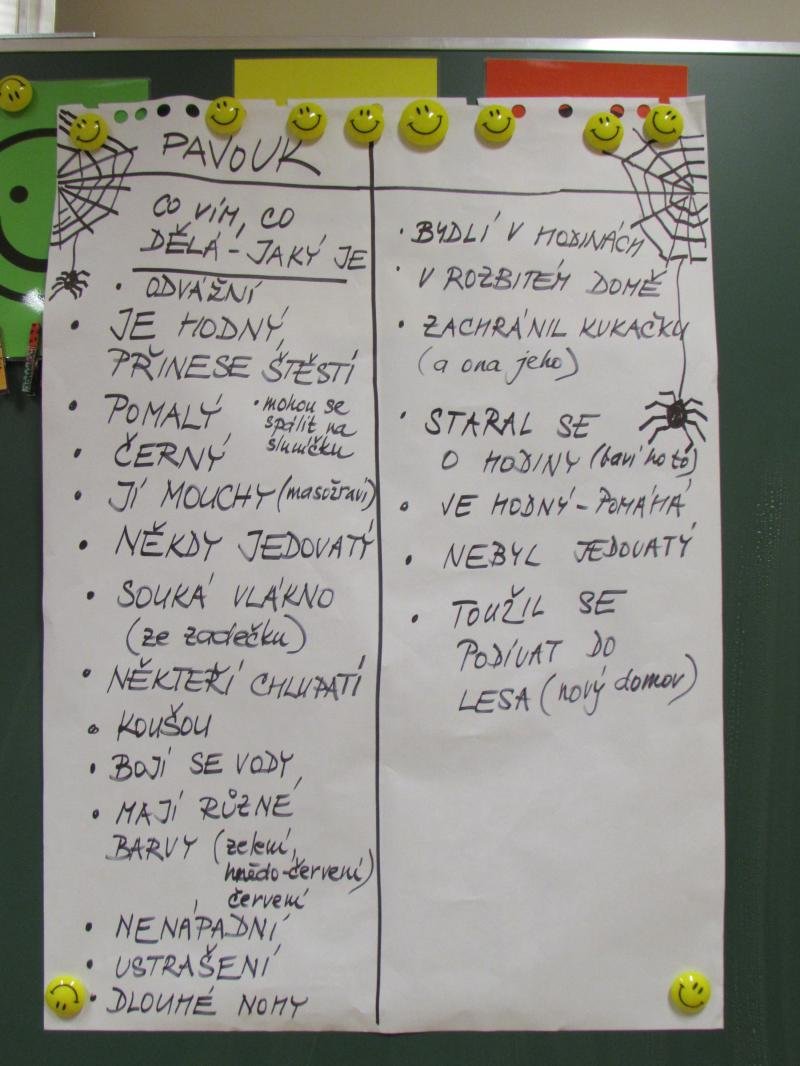 PAVOUK
CO VÍM, CO
DĚLÁ - JAKÝ JE
• ODVÁŽNÍ
• JE HODNÝ,
PŘINESE ŠTĚSTÍ
• POMALÝ
• mohou se
spálit na
sluníčku
• ČERNÝ
• JÍ MOUCHY (masožraví)
• NĚKDY JEDOVATÝ
• SOUKÁ VLÁKNO
(ze zadečku)
• NĚKTEŘÍ CHLUPATÍ
• KOUŠOU
• BOJÍ SE VODY
• MAJÍ RŮZNÉ
BARVY (zelení,
hnědo-červení)
červení
• NENÁPADNÍ
• USTRAŠENÍ
• DLOUHÉ NOHY
• BYDLÍ V HODINÁCH
• V ROZBITÉM DOMĚ
• ZACHRÁNIL KUKAČKU
(a ona jeho)
• STARAL SE
O HODINY (baví ho to)
• JE HODNÝ - POMÁHÁ
• NEBYL JEDOVATÝ
• TOUŽIL SE
PODÍVAT DO
LESA (nový domov)